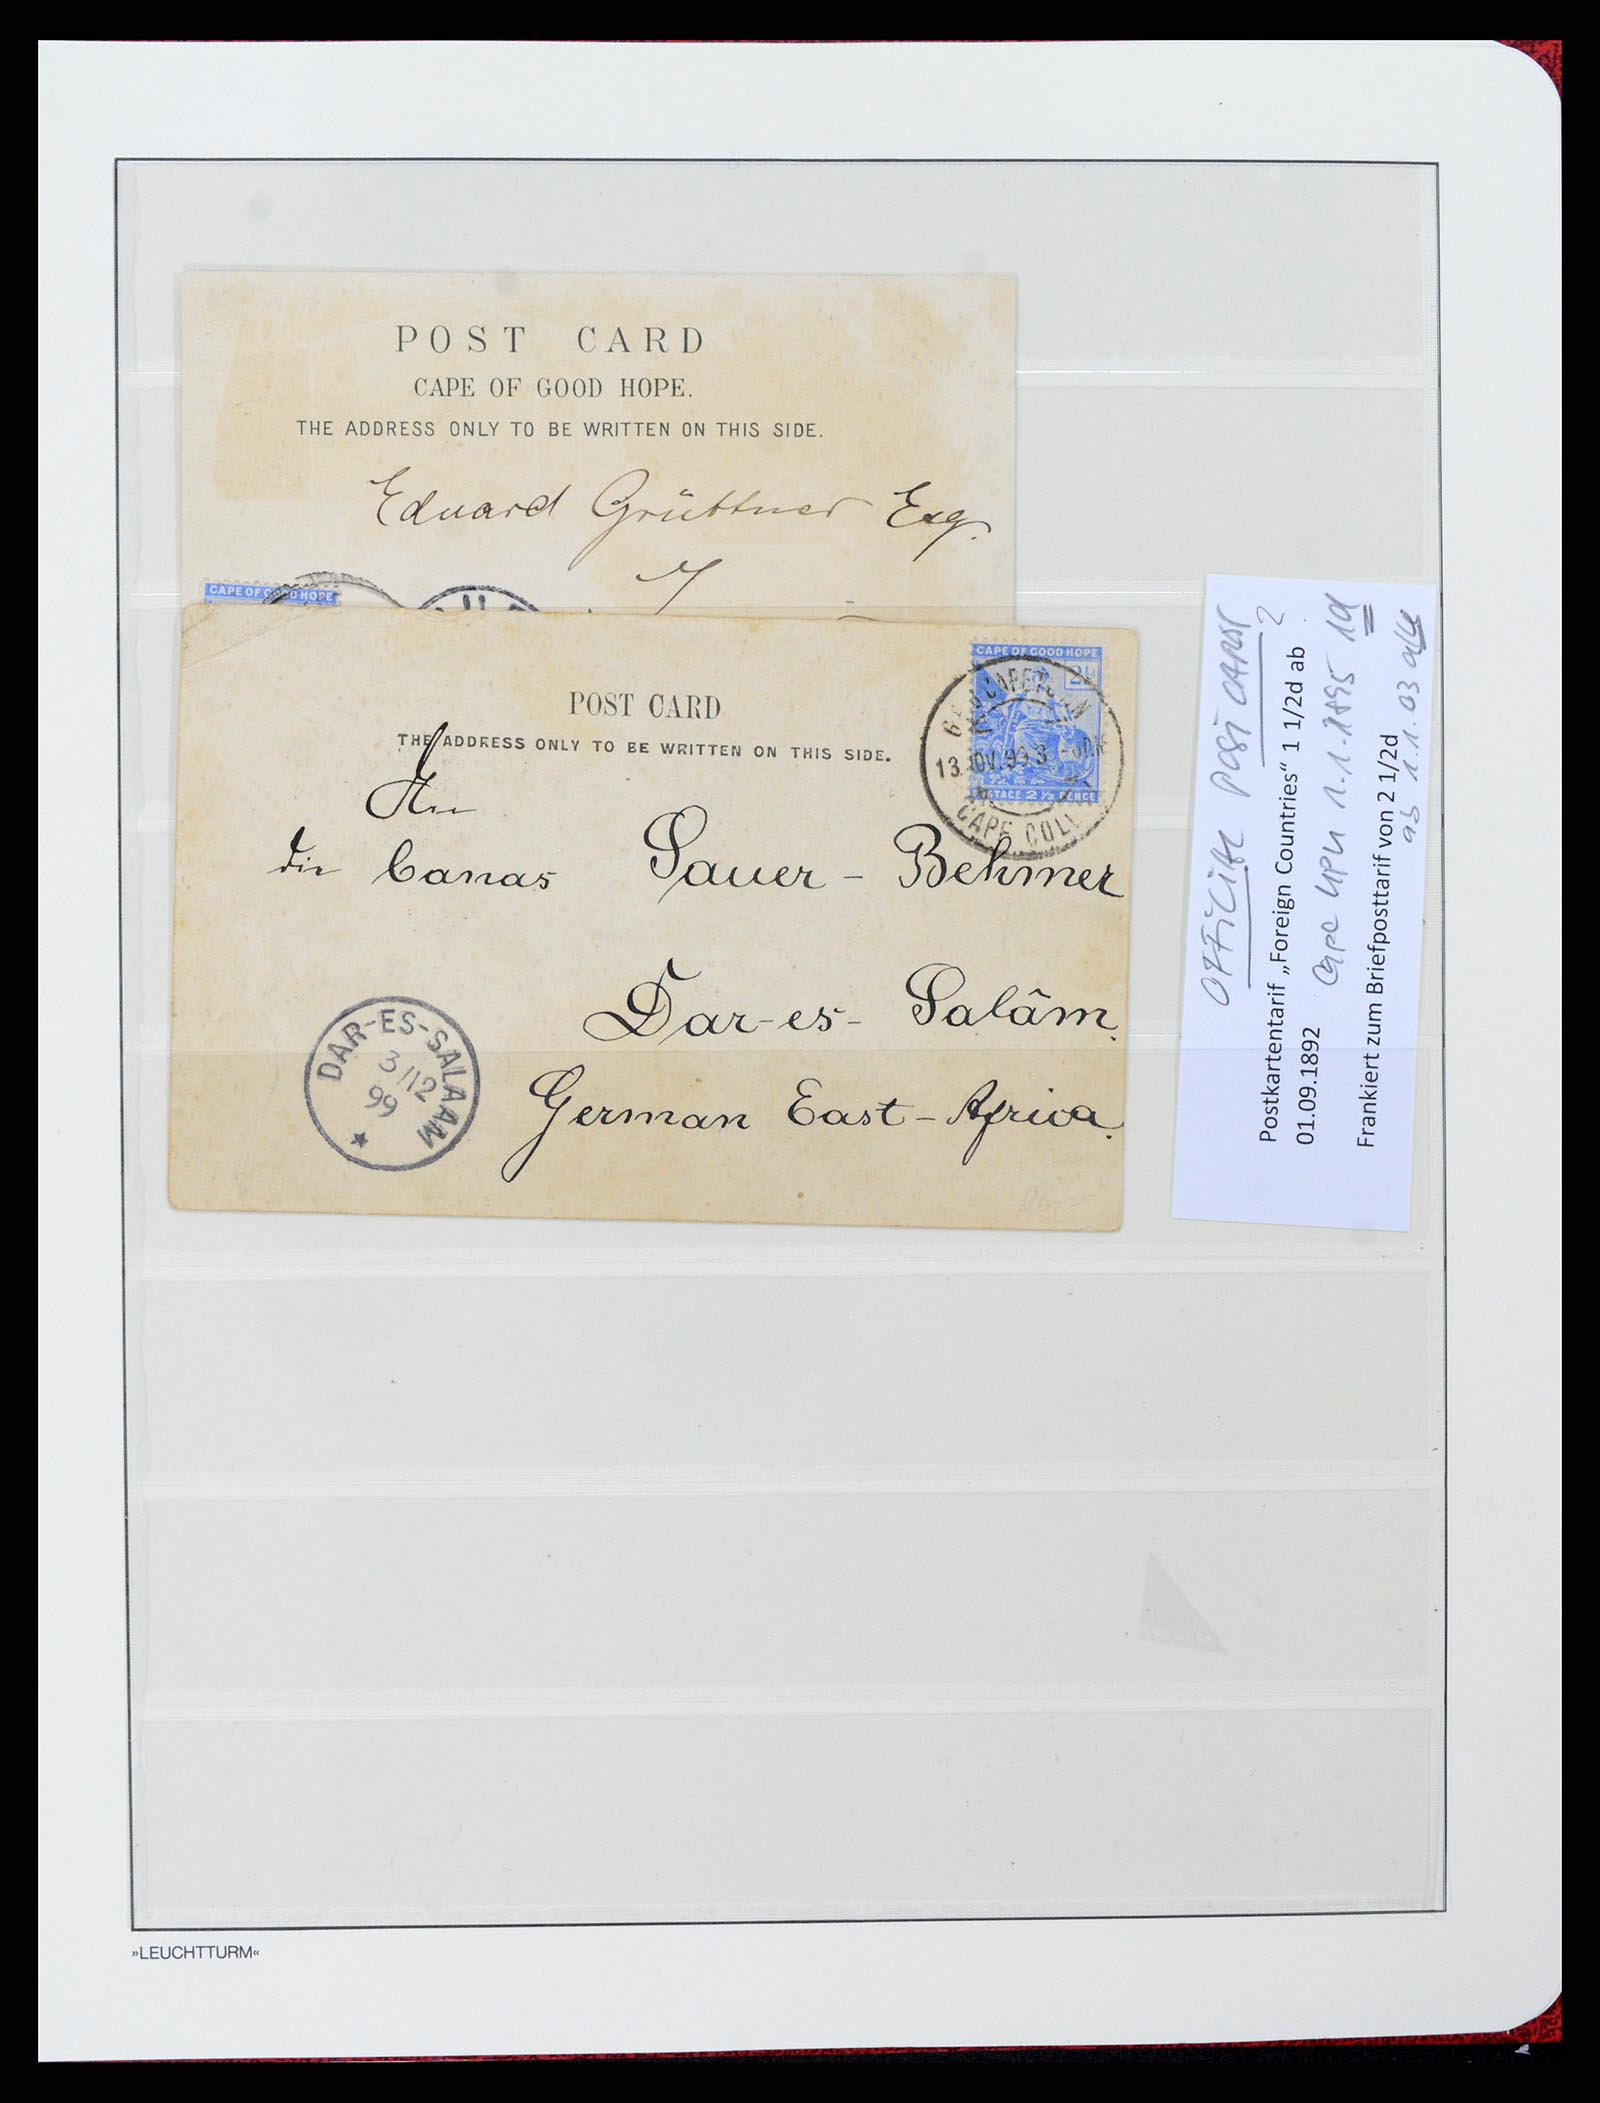 POST CARD
CAPE OF GOOD HOPE.
THE ADDRESS ONLY TO BE WRITTEN ON THIS SIDE.
Eduard Grüttner Esq.
CAPE OF GOOD HOPE
CAPE OF GOOD HOPE
2½
POSTAGE 2½ PENCE
CAPETOWN
13 NOV. 99
CAPE COL
POST CARD
THE ADDRESS ONLY TO BE WRITTEN ON THIS SIDE.
An
die Sauer - Behmer
Dar-es- Salâm.
German East-Africa.
DAR-ES-SALAAM
3/12
99
OFFICIAL POST CARD
Postkartentarif „Foreign Countries“ 1 1/2d ab
01.09.1892
Cape UPU 1.1.1895 1d
Frankiert zum Briefposttarif von 2 1/2d
ab 1.1.03
»LEUCHTTURM«